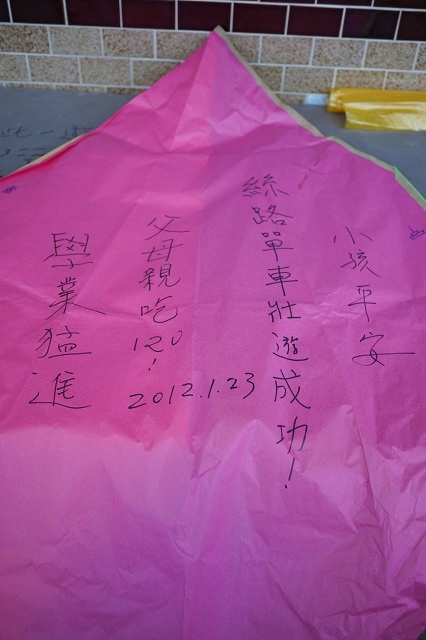 小孩平安
絲路單車壯遊成功!
父母親吃120!
2012.1.23
學業猛進